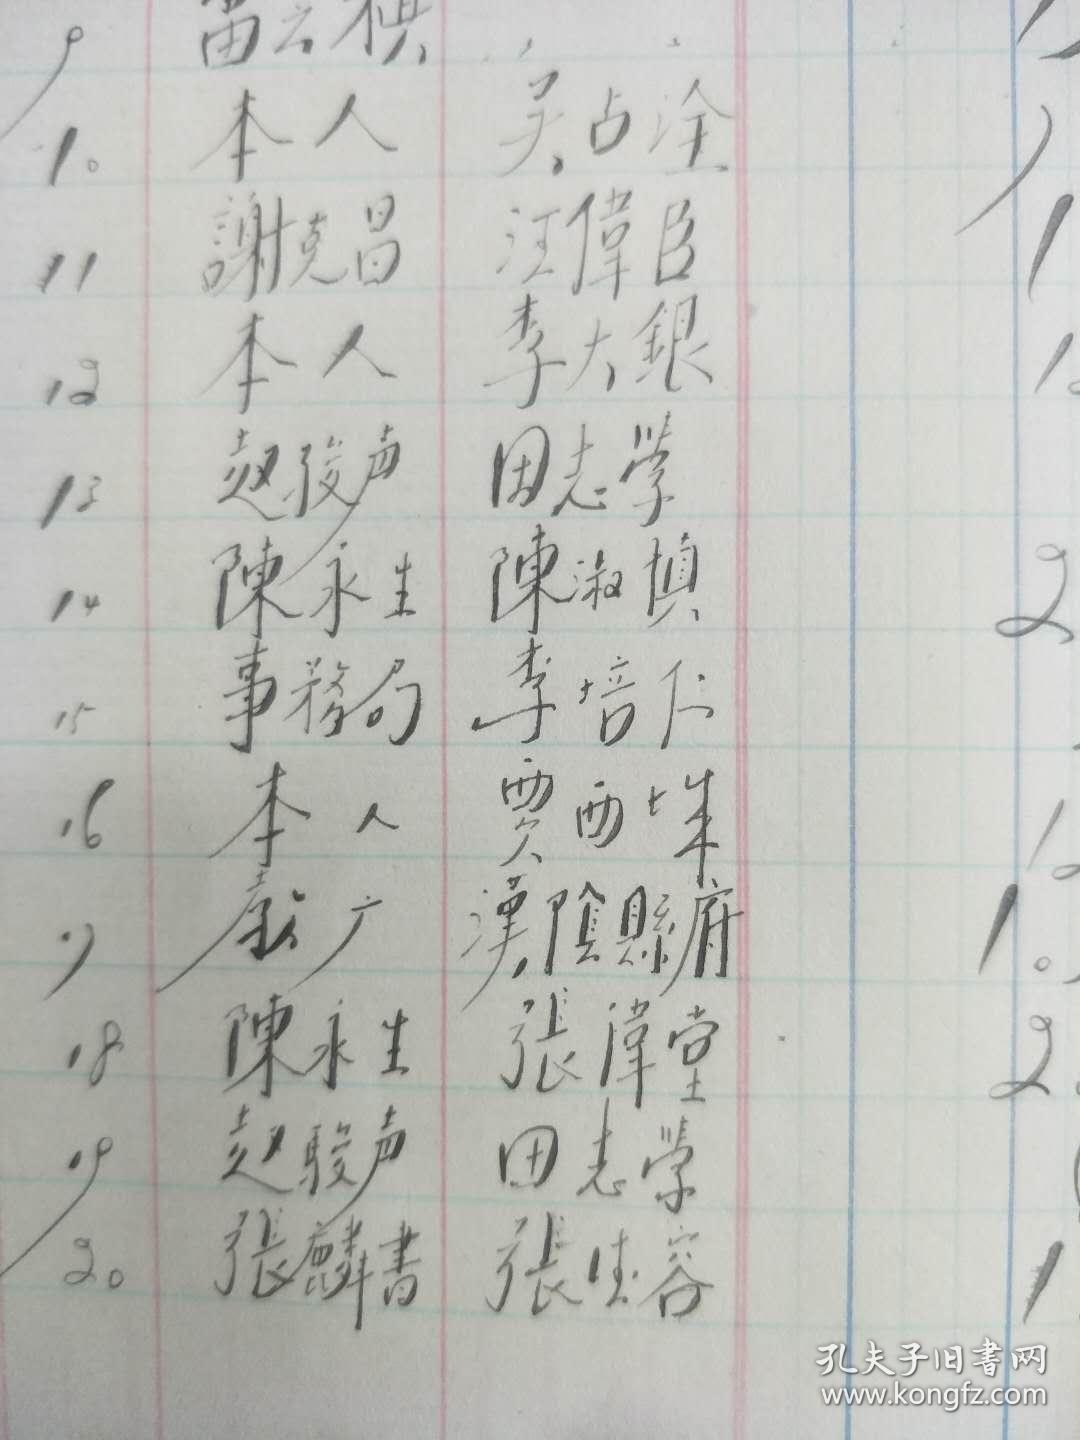 9 雷云棋
10 本人 吴占淦
11 謝克昌 汪偉臣
12 本人 李大銀
13 赵骏声 田志學
14 陳永生 陳淑慎
15 事務局 李培仁
16 本人 贾西垛
17 广 漢陰縣府
18 陳永生 張偉堂
19 赵駿声 田志學
20 張麟書 張佳容
2
10
2
1
孔夫子旧書网
www.kongfz.com